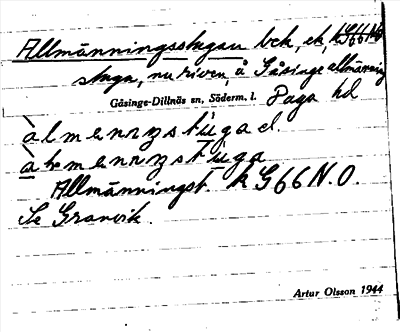 Allmänningsstugan bck, ek, k G66 N.O.
stuga, nu riven, å Gåsinge allmänning
Gåsinge-Dillnäs sn, Söderm. l. Daga hd
àlmennŋstùga d.
àlmennŋstùga
Allmänningst. k G66 N.O.
Se Granvik.
Artur Olsson 1944